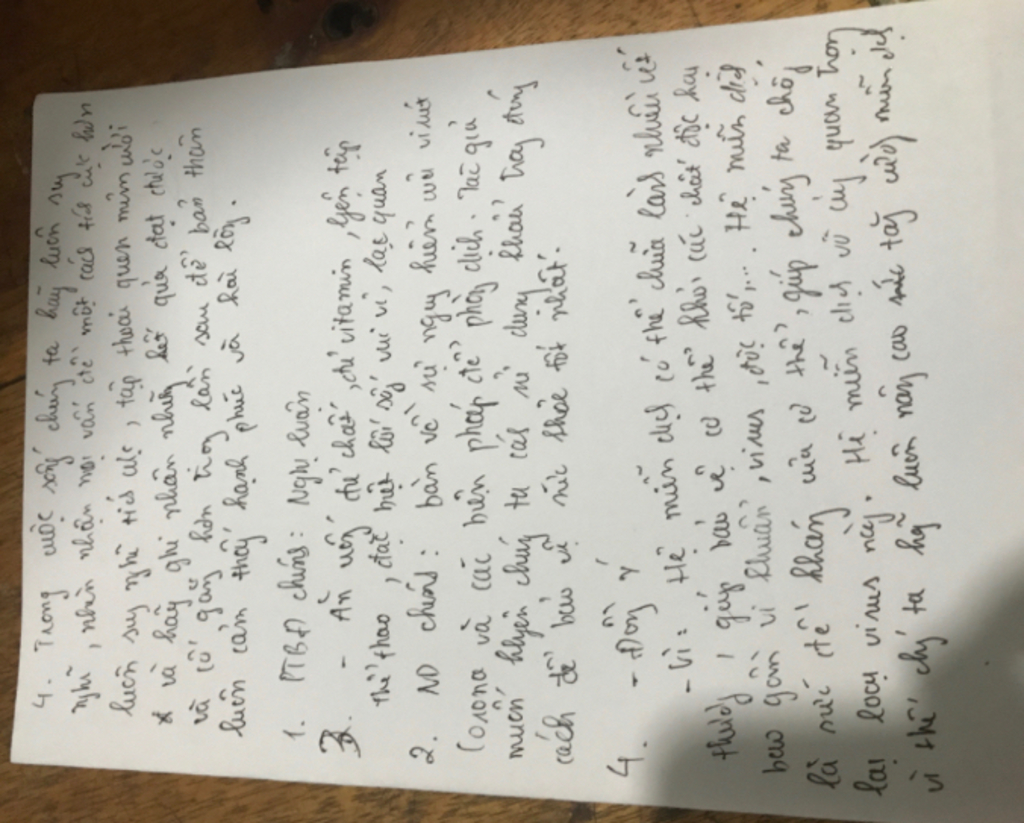 4. Trong cuộc sống chúng ta hãy luôn suy
nghĩ, nhìn nhận mọi vấn đề một cách tích cực hơn
luôn suy nghĩ tích cực, tập thói quen mỉm cười
và hãy ghi nhận những kết quả đạt được
và cố gắng hơn trong lần sau để bản thân
luôn cảm thấy hạnh phúc và hài lòng.
1. PTBĐ chính: Nghị luận
3. - Ăn uống đủ chất, đủ vitamin, luyện tập
thể thao, đặc biệt lối sống vui vẻ, lạc quan
2. ND chính: bàn về sự nguy hiểm của virut
Corona và các biện pháp để phòng dịch. Tác giả
muốn khuyên chúng ta cách sử dụng khẩu trang đúng
cách để bảo vệ sức khỏe tốt nhất.
4. - Đồng ý
- Vì: Hệ miễn dịch có thể chữa lành nhiều vết
thương, giúp bảo vệ cơ thể khỏi các chất độc hại
bao gồm vi khuẩn, virus, độc tố,... Hệ miễn dịch
là sức đề kháng của cơ thể, giúp chúng ta chống
lại loại virus này. Hệ miễn dịch vô cùng quan trọng
vì thế chúng ta hãy luôn nâng cao sức tăng cường miễn dịch